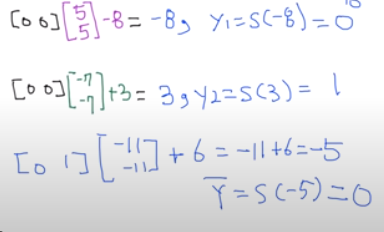 [0 0] [5 5] -8 = -8, y₁=S(-8)=0
[0 0] [-7 -7] +3 = 3, y2=S(3) = 1
[0 1] [-11 -11] + 6 = -11+6=-5
Y̅=S(-5)=0